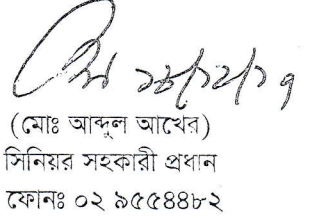 ১৮/১২/১৭
(মোঃ আব্দুল আখের)
সিনিয়র সহকারী প্রধান
ফোনঃ ০২ ৯৫৫৪৪৮২